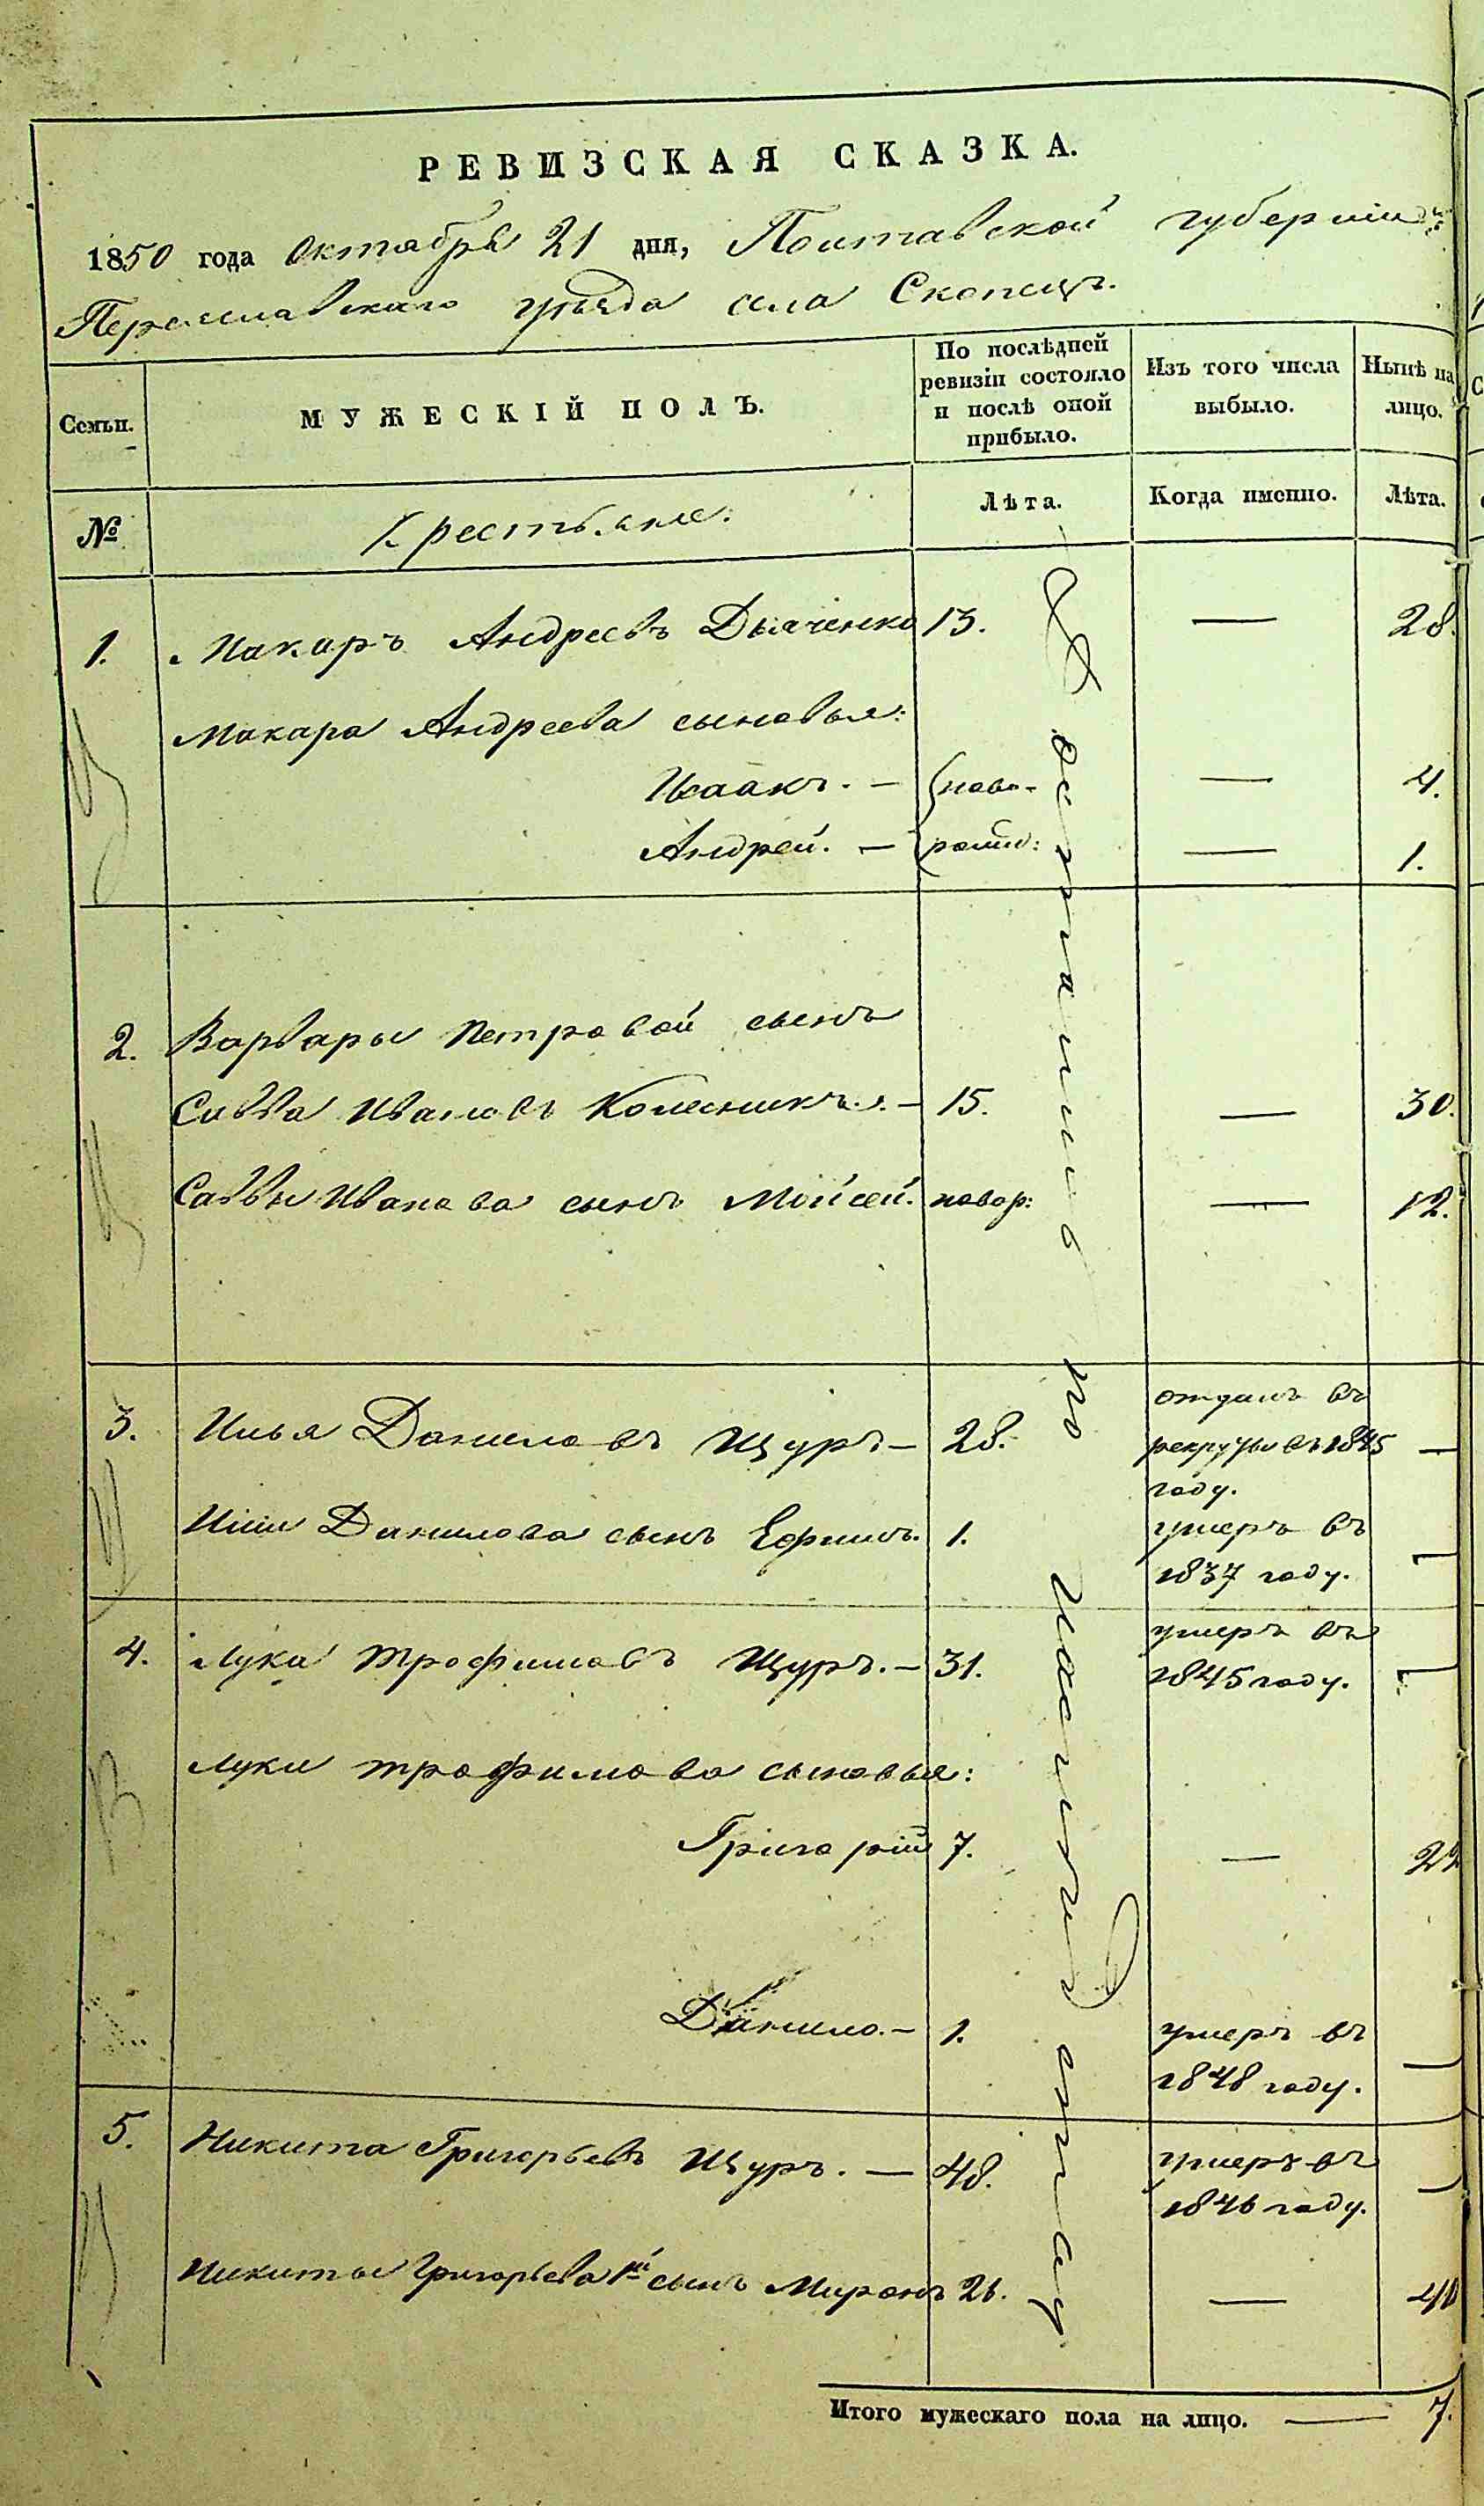 РЕВИЗСКАЯ СКАЗКА.
1850 года Октября 21 дня, Полтавской губерніи
Переяславскаго уѣзда села Скопецъ.
Семьи.
МУЖЕСКІЙ ПОЛЪ.
По послѣдней
ревизіи состояло
и послѣ оной
прибыло.
Изъ того числа
выбыло.
Нынѣ на
лицо.
№
Крестьяне:
Лѣта.
Когда именно.
Лѣта.
1. Макаръ Андреевъ Дьяченко 13. — 28.
Макара Андреева сыновья:
Исаакъ. — ново- — 4.
Андрей. — рожд: — 1.
2. Варвары Петровой сынъ
Савва Ивановъ Колесникъ. — 15. — 30.
Саввы Иванова сынъ Мойсей. новор: — 12.
3. Илья Даниловъ Щуръ — 28. отданъ въ
рекруты въ 1845 —
году.
Ильи Данилова сынъ Ефимъ. 1. умеръ въ
1837 году. —
4. Лука Трофимовъ Щуръ. — 31. умеръ въ
1845 году. —
Луки Трофимова сыновья:
Григорій 7. — 22
Данило. — 1. умеръ въ
1848 году. —
5. Никита Григорьевъ Щуръ. — 48. умеръ въ
1846 году. —
Никиты Григорьева 1й сынъ Миронъ 26. — 41
Итого мужескаго пола на лицо. — 7.